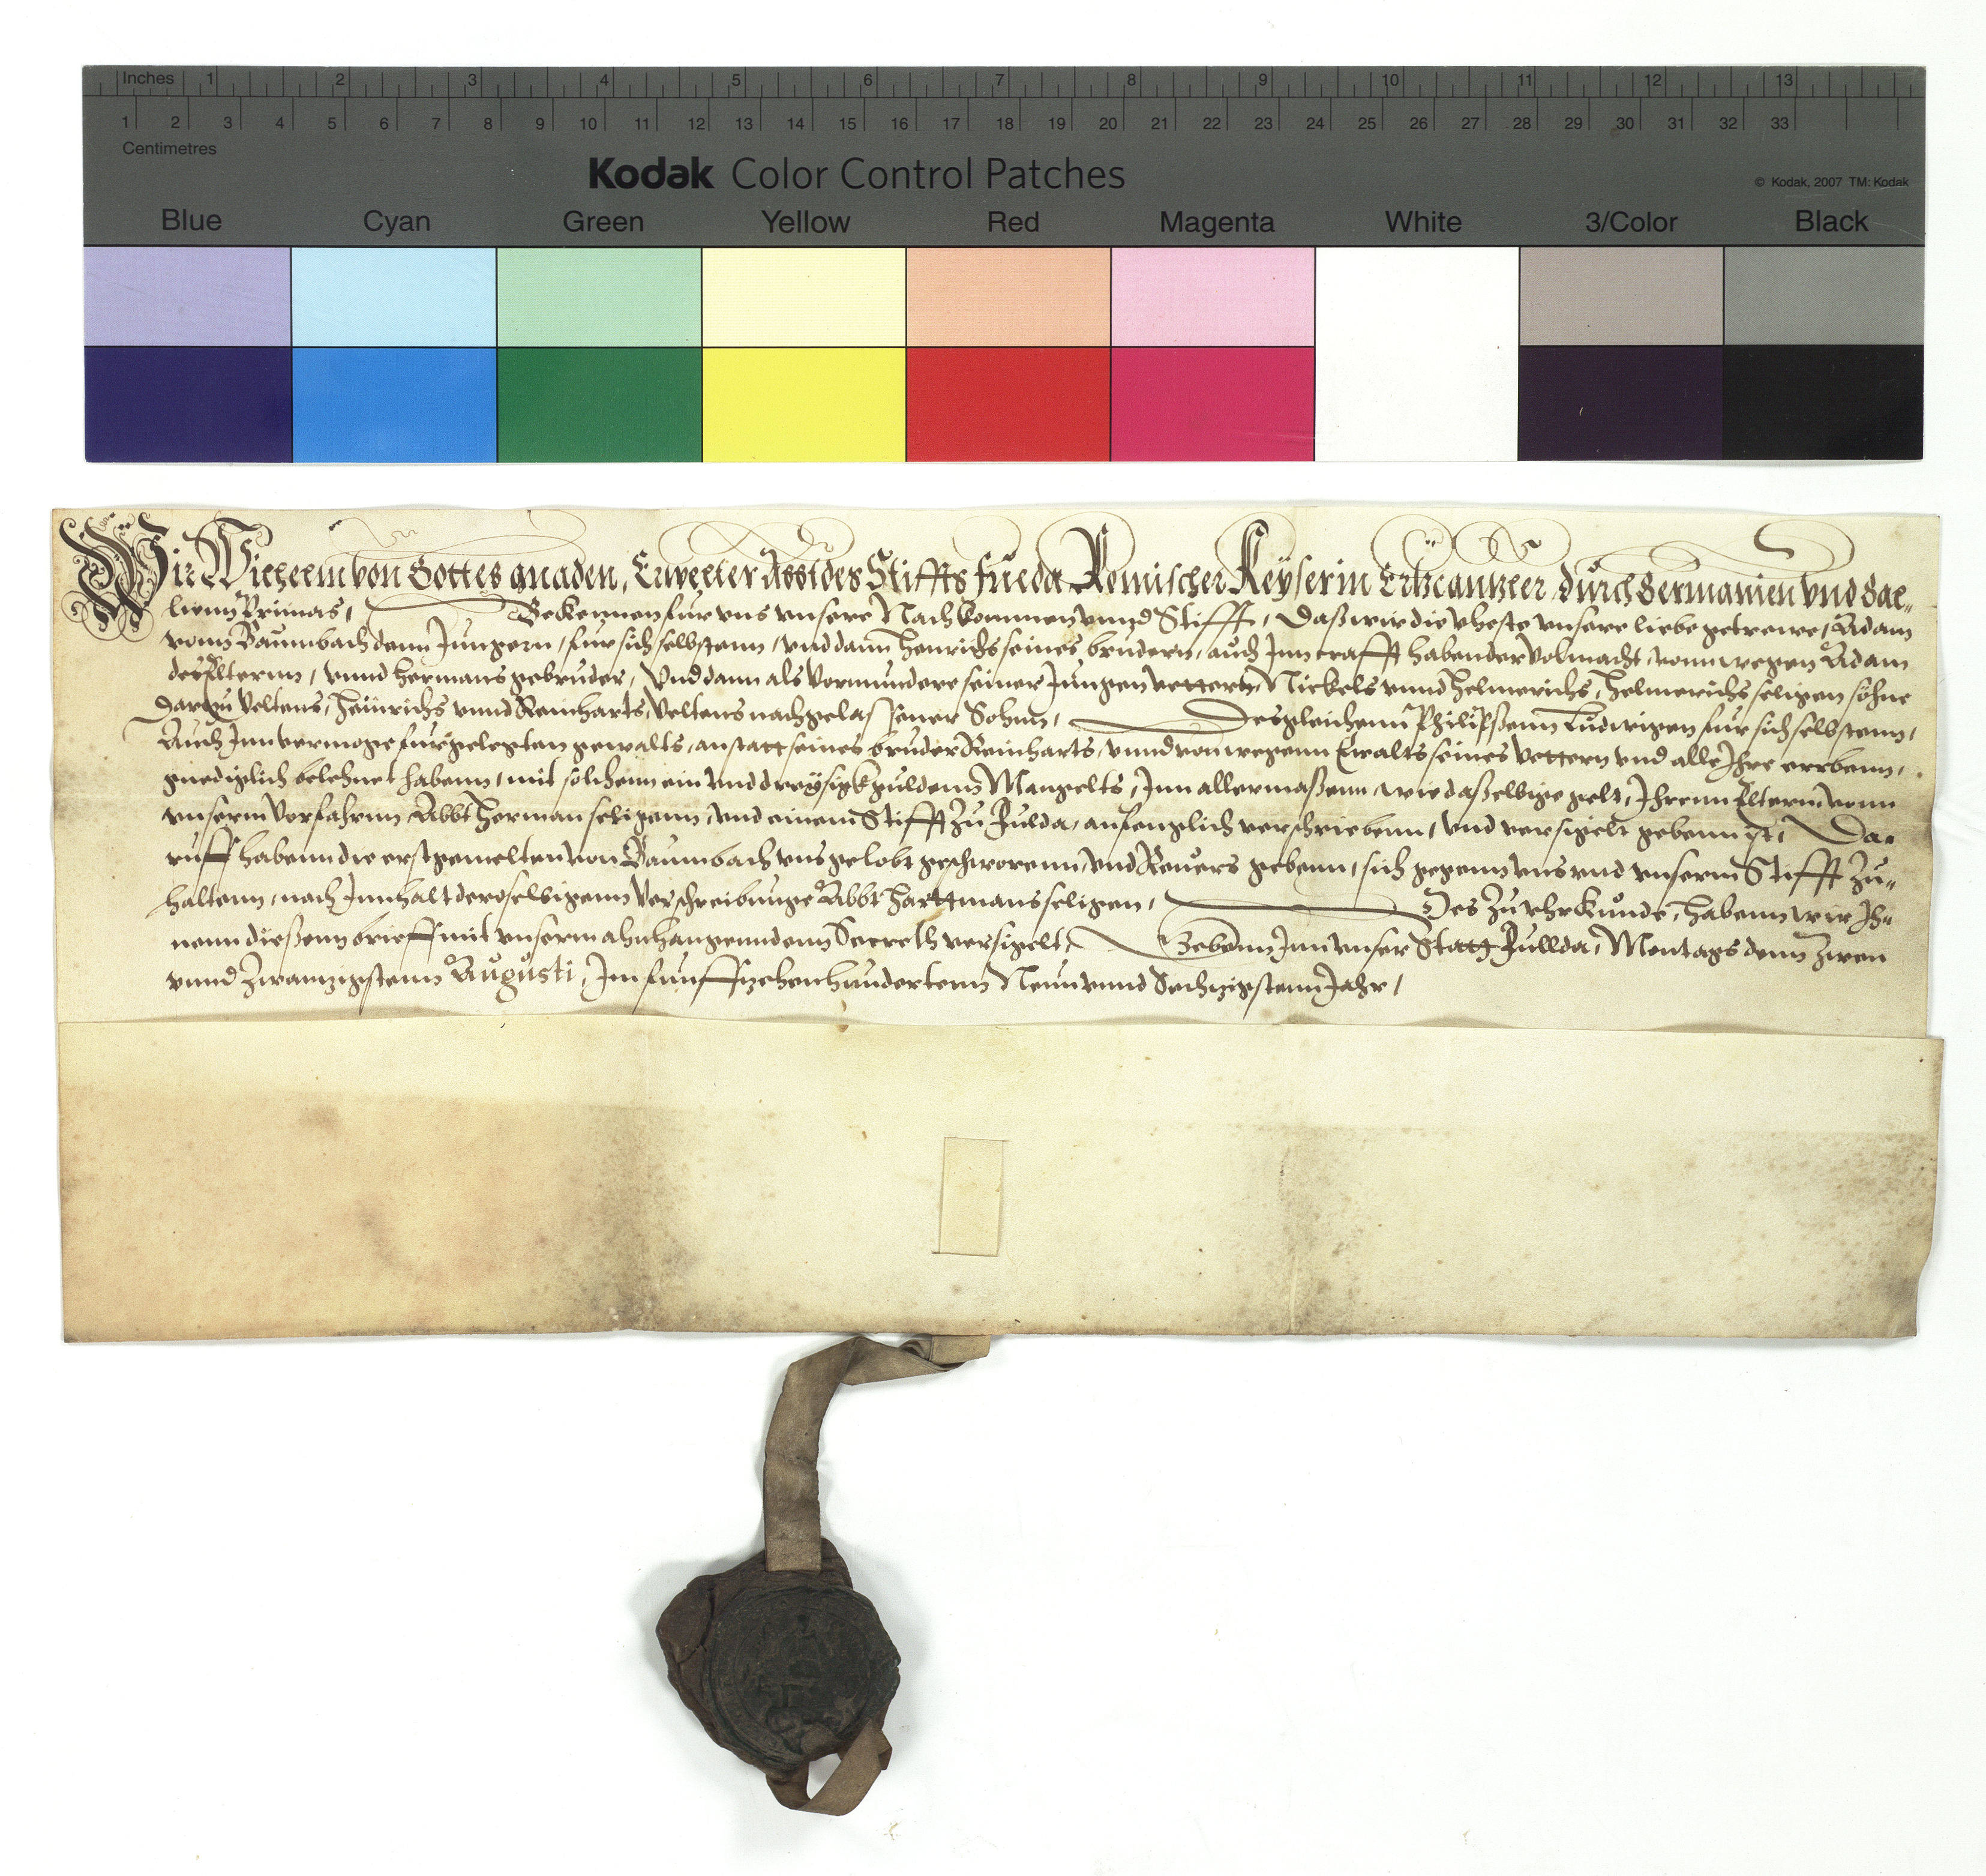 Inches 1 2 3 4 5 6 7 8 9 10 11 12 13
1 2 3 4 5 6 7 8 9 10 11 12 13 14 15 16 17 18 19 20 21 22 23 24 25 26 27 28 29 30 31 32 33
Centimetres
Kodak Color Control Patches
© Kodak, 2007 TM: Kodak
Blue Cyan Green Yellow Red Magenta White 3/Color Black
Wir Wilhelm von Gottes gnaden, Erwelter Abbt des Stiffts fulda Romischer Keyserin Ertzcantzler, durch Germanien vnd Gal-
lienn Primas, Bekennen fur vns vnsere Nachkommen vnnd Stifft, Daß wir die vheste vnsere liebe getrewe, Adam
vonn Baumbach denn Jungern, fur sich selbstenn, vnd dann Henrichs seines brudern, auch Inn crafft habender volmacht, vonn wegen Adam
des Elternn, vnnd Hermans gebruder, Vnd dann als Vormundere seiner Jungen vettern, Nickels vnnd Helmerichs, Helmerichs seligen söhne
Dartzu Veltens, Heinrichs vnnd Reinharts, Veltens nachgelassener Sohnn, Desgleichenn Philipßenn Ludwigen fur sich selbstenn,
Auch Inn vermoge furgelegten gewalts, anstatt seines bruder Reinharts, vnnd von wegenn Ewalts seines Vettern vnd alle Ihre erbenn,
gnediglich belehnet habenn, mit solchenn ein vnd dreysigk guldenn Mangelts, Inn allermaßenn, wie daßelbige gelt, Ihrenn Elternn vonn
vnserm Vorfahrnn, Abbt Herman seligenn, vnd einem Stifft zu Fulda, anfenglich verschriebenn, vnd versigelt gebenn ist, Da-
ruff habenn die erstgemelten von Baumbach vns gelobt geschworenn, vnd Reuers gebenn, sich gegenn vns vnd vnserm Stifft zu-
haltenn, nach Innhalt deroselbigenn Verschreibunge Abbt Harttmans seligen, Des zu vhrkunde, habenn wir Ih-
nenn dießenn brieff mit vnserm ahnhangenndenn Secreth versigelt, Gebenn Inn vnser Statt Fullda, Montags denn zwen
vnnd zwantzigstenn Augusti, Im funffzehenhundertenn Neun vnnd Sechzigstenn Jahr,